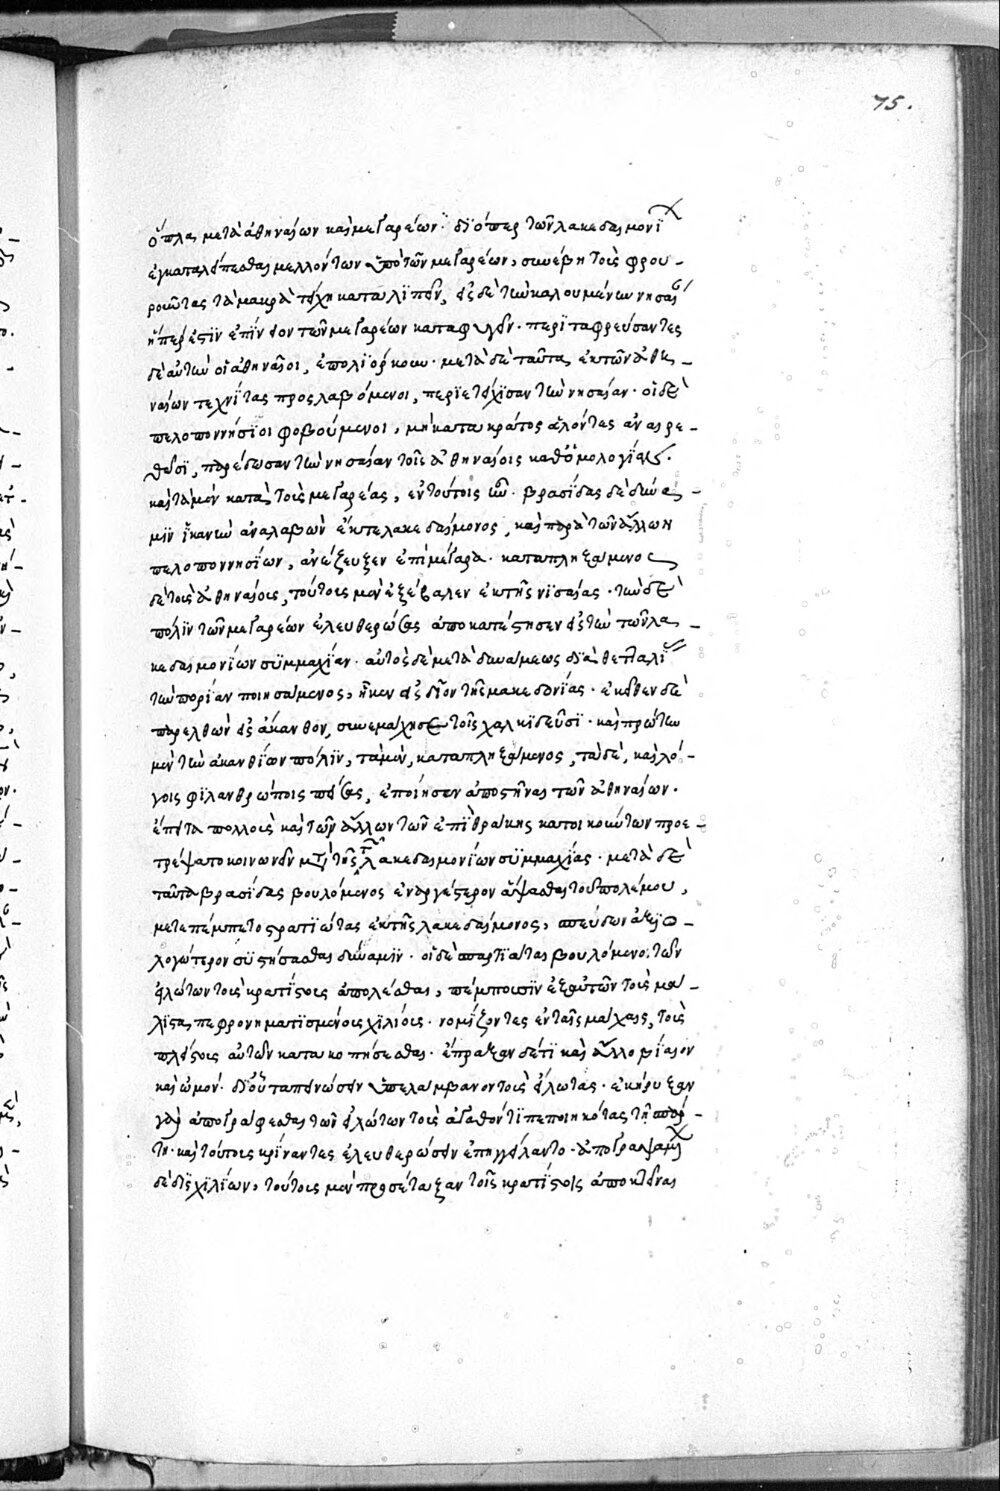 75.
ὅπλα μετὰ ἀθηναίων καὶ μεγαρέων· διόπερ τῶν λακεδαιμονί
ἐγκαταλείπεσθαι μελλόντων ὑπὸ τῶν μεγαρέων, συνέβη τοὺς φρου-
ροῦντας τὰ μακρὰ τείχη καταλιπεῖν, εἰς δὲ τὴν καλουμένην νησαί
ἥπερ ἐστὶν ἐπίνειον τῶν μεγαρέων καταφυγεῖν· περιταφρεύσαντες
δὲ αὐτὴν οἱ ἀθηναῖοι, ἐπολιόρκουν· μετὰ δὲ ταῦτα ἐκ τῶν ἀθη-
ναίων τεχνίτας προσλαβόμενοι, περιετείχισαν τὴν νησαίαν· οἱ δὲ
πελοποννήσιοι φοβούμενοι, μὴ κατα κράτος ἁλόντες ἀναιρε-
θῶσι, παρέδωσαν τὴν νησαίαν τοῖς ἀθηναίοις καθ' ὁμολογίας.
καὶ τὰ μὲν κατὰ τοὺς μεγαρέας, ἐν τούτοις ἦν· βρασίδας δὲ δύνα-
μιν ἱκανὴν ἀναλαβὼν ἐκ τε λακεδαίμονος, καὶ παρὰ τῶν ἄλλων
πελοποννησίων, ἀνέζευξεν ἐπὶ μέγαρα· καταπληξάμενος
δὲ τοὺς ἀθηναίους, τούτους μὲν ἐξέβαλεν ἐκ τῆς νισαίας· τὴν δὲ
πόλιν τῶν μεγαρέων ἐλευθερώσας ἀποκατέστησεν εἰς τὴν τῶν λα-
κεδαιμονίων συμμαχίαν· αὐτὸς δὲ μετὰ δυνάμεως διὰ θετταλί
τὴν πορίαν ποιησάμενος, ἧκεν εἰς δῖον τῆς μακεδονίας· ἐκεῖθεν δὲ
παρελθὼν εἰς ἄκανθον, συνεμάχησε τοῖς χαλκιδεῦσι· καὶ πρώτην
μὲν τὴν ἀκανθίων πόλιν, τὰ μὲν, καταπληξάμενος, τὰ δὲ, καὶ λό-
γοις φιλανθρώποις πείσας, ἐποίησεν ἀποστῆναι τῶν ἀθηναίων.
ἔπειτα πολλοὺς καὶ τῶν ἄλλων τῶν ἐπὶ θράκης κατοικούντων προε-
τρέψατο κοινωνεῖν τῆς τῶν λακεδαιμονίων συμμαχίας· μετὰ δὲ
ταῦτα βρασίδας βουλόμενος ἐνεργέστερον ἅψασθαι τοῦ πολέμου,
μετεπέμπετο στρατιώτας ἐκ τῆς λακεδαίμονος, σπεύδων ἀξιο-
λογώτερον συστήσασθαι δύναμιν· οἱ δὲ σπαρτιᾶται βουλόμενοι τῶν
εἱλώτων τοὺς κρατίστους ἀπολέσθαι, πέμπουσιν ἐξ αὐτῶν τοὺς μά-
λιστα πεφρονηματισμένους χιλίους· νομίζοντες ἐν ταῖς μάχαις, τοὺς
πλείστους αὐτῶν κατακοπήσεσθαι· ἔπραξαν δέ τι καὶ ἄλλο βίαιον
καὶ ὠμόν· δι' οὗ ταπεινώσειν ὑπελάμβανον τοὺς εἵλωτας· ἐκήρυξαν
γὰρ ἀπογράφεσθαι τῶν εἱλώτων τοὺς ἀγαθόν τι πεποιηκότας τῇ σπάρ-
τῃ· καὶ τούτους κρίναντες ἐλευθερώσειν ἐπηγγείλαντο· ἀπογραψαμέ
δὲ δισχιλίων, τούτους μὲν προσέταξαν τοῖς κρατίστοις ἀποκτεῖναι